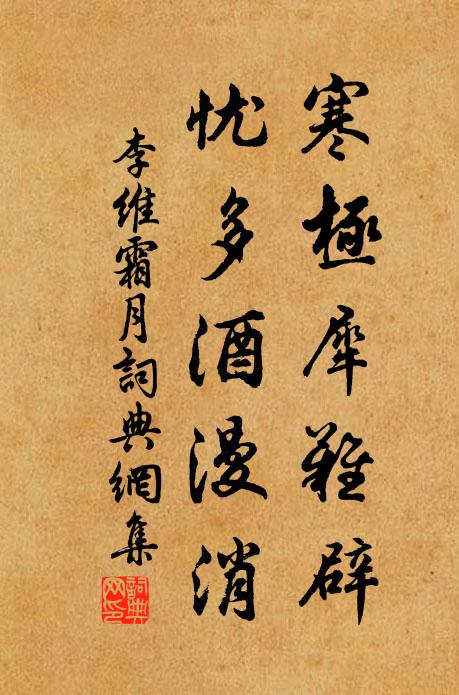 寒極犀難辟
忧多酒漫消
李維霜月詞典網集
詞典
网印